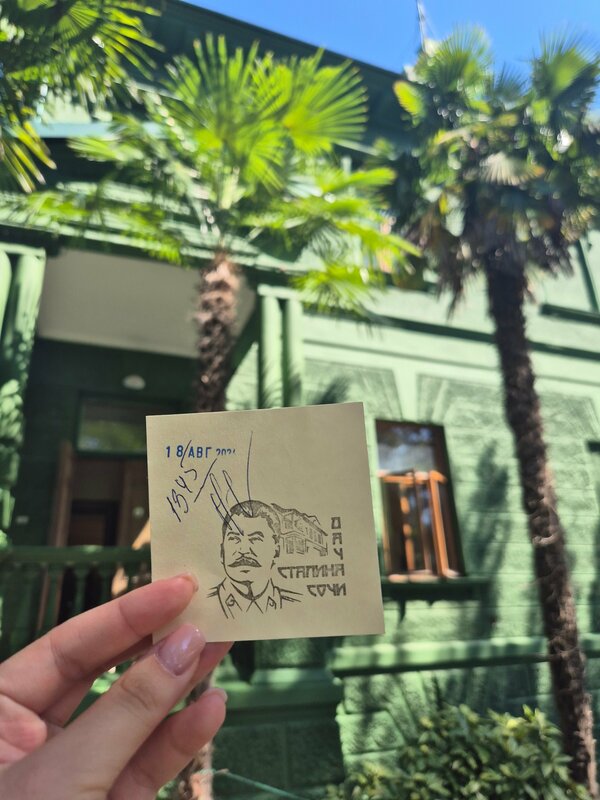 18 АВГ 2024
1345
ДАЧА
СТАЛИНА
СОЧИ